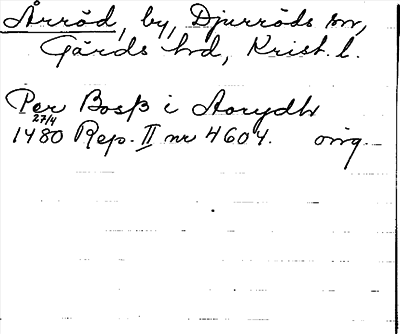 Årröd, by, Djurröds sn,
Gärds hd, Krist. l.
Per Bosß i Aorydh
27/4
1480 Rep. II nr 4604. orig.